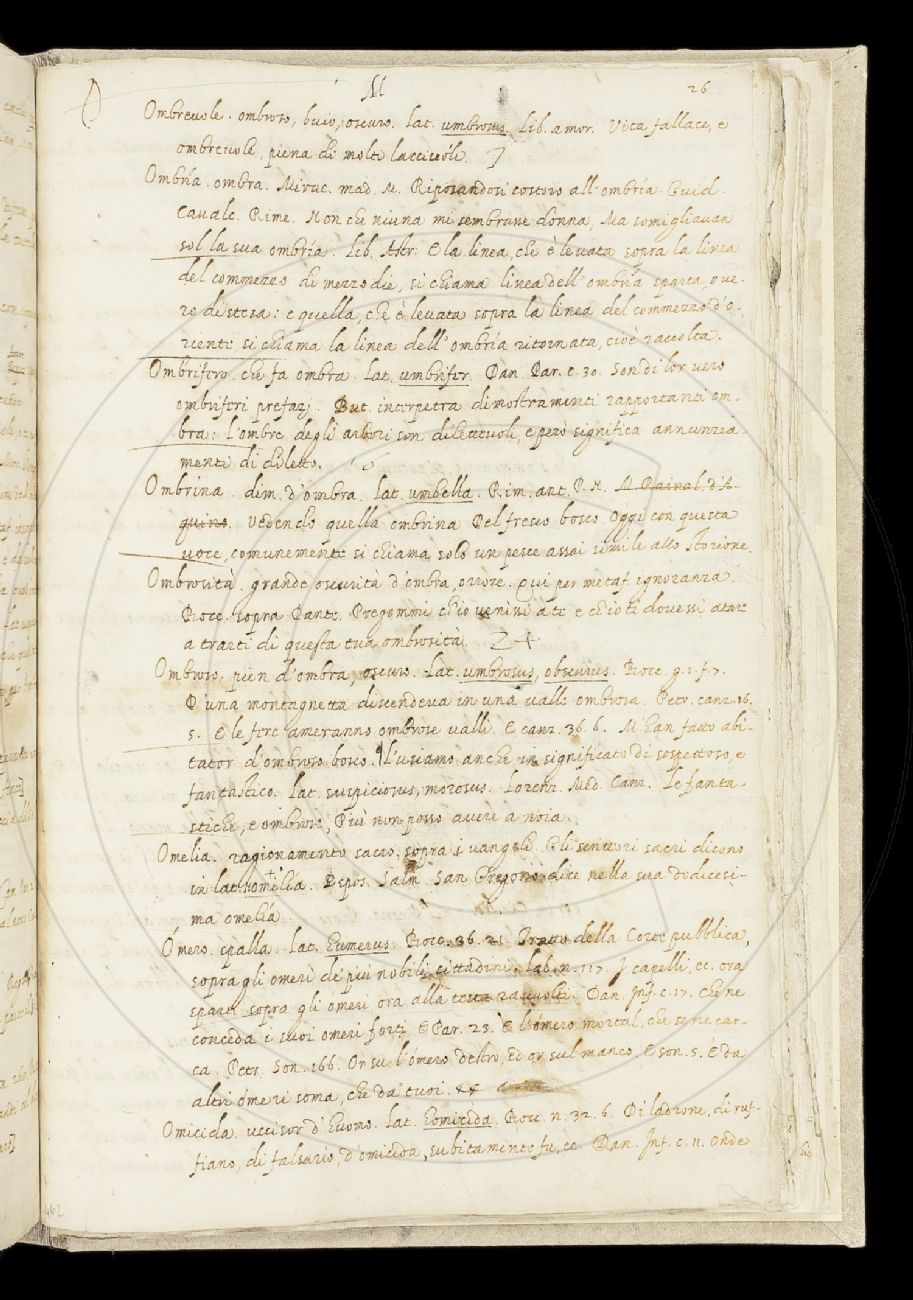 O M 26
Ombrevole. ombroso, buio, oscuro. Lat. umbrosus. Lib. amor. Vita fallace, e
ombrevole, piena di molti lacciuoli. 7
Ombría. ombra. Mirac. mad. M. Riposandosi costoro all'ombría. Guid.
Cavalc. Rime. Non che niuna mi sembrasse donna, Ma somigliavan
sol la sua ombría. Lib. Astr. E la linea, che è levata sopra la linea
del commezzo di mezzo die, si chiama linea dell'ombría sparta, ove-
ro distesa: e quella, che è levata sopra la linea del commezzo d'o-
riente si chiama la linea dell'ombría ritornata, cioè raccolta.
Ombrifero. che fa ombra. Lat. umbrifer. Dan. Par. c. 30. Son di lor vero
ombriferi prefazj. But. interpetra dimostramenti rapportanti om-
bra: l'ombre degli arbori son dilettevoli, e però significa annunzia-
menti di diletto.
Ombrina. dim. d'ombra. Lat. umbella. Rim. ant. P. N. M. Rainal. d'A-
quino. Vedendo quella ombrina Del fresco bosco. Oggi con questa
voce, comunemente si chiama solo un pesce assai simile allo storione.
Ombrosità. grande oscurità d'ombra, orrore. Qui per metaf. ignoranza.
Bocc. sopra Dante. Pregommi ch'io venissi a te e ch'io ti dovessi atare
a trarti di questa tua ombrosità. 24
Ombroso. pien d'ombra, oscuro. Lat. umbrosus, obscurus. Bocc. g. 1. f. 7.
D'una montagnetta discendeva in una valle ombrosa. Petr. canz. 16.
5. E le fere ameranno ombrose valli. E canz. 36. 6. M'han fatto abi-
tator d'ombroso bosco. L'usiamo anche in significato di sospettoso, e
fantastico. Lat. suspiciosus, morosus. Lorenz. Med. Canz. Le fanta-
stiche, e ombrose, Più non posso avere a noia.
Omelía. ragionamento sacro, sopra i vangeli. Gli scrittori sacri dicono
in lat. homilía. Espos. Salm. San Gregorio dice nella sua dodicesi-
ma omelía.
Ómero. spalla. Lat. humerus. Bocc. 36. 21. Tratto della Corte pubblica,
sopra gli omeri de' più nobili cittadini. Lab. n. 117. I capelli, ec. ora
sparti sopra gli omeri ora alla testa ravvolti. Dan. Inf. c. 17. Che ne
conceda i suoi omeri forti. E Par. 23. E l'ómero mortal, che se ne car-
ca. Petr. Son. 166. Or su l'ómero destro, ed or sul manco. E son. 5. È da
altri ómeri soma, che da' tuoi.
Omicida. uccisor d'huomo. Lat. homicida. Bocc. n. 32. 6. Di ladrone, di ruf-
fiano, di falsario, d'omicida, subitamente fu, ec. Dan. Inf. c. 11. Onde
462